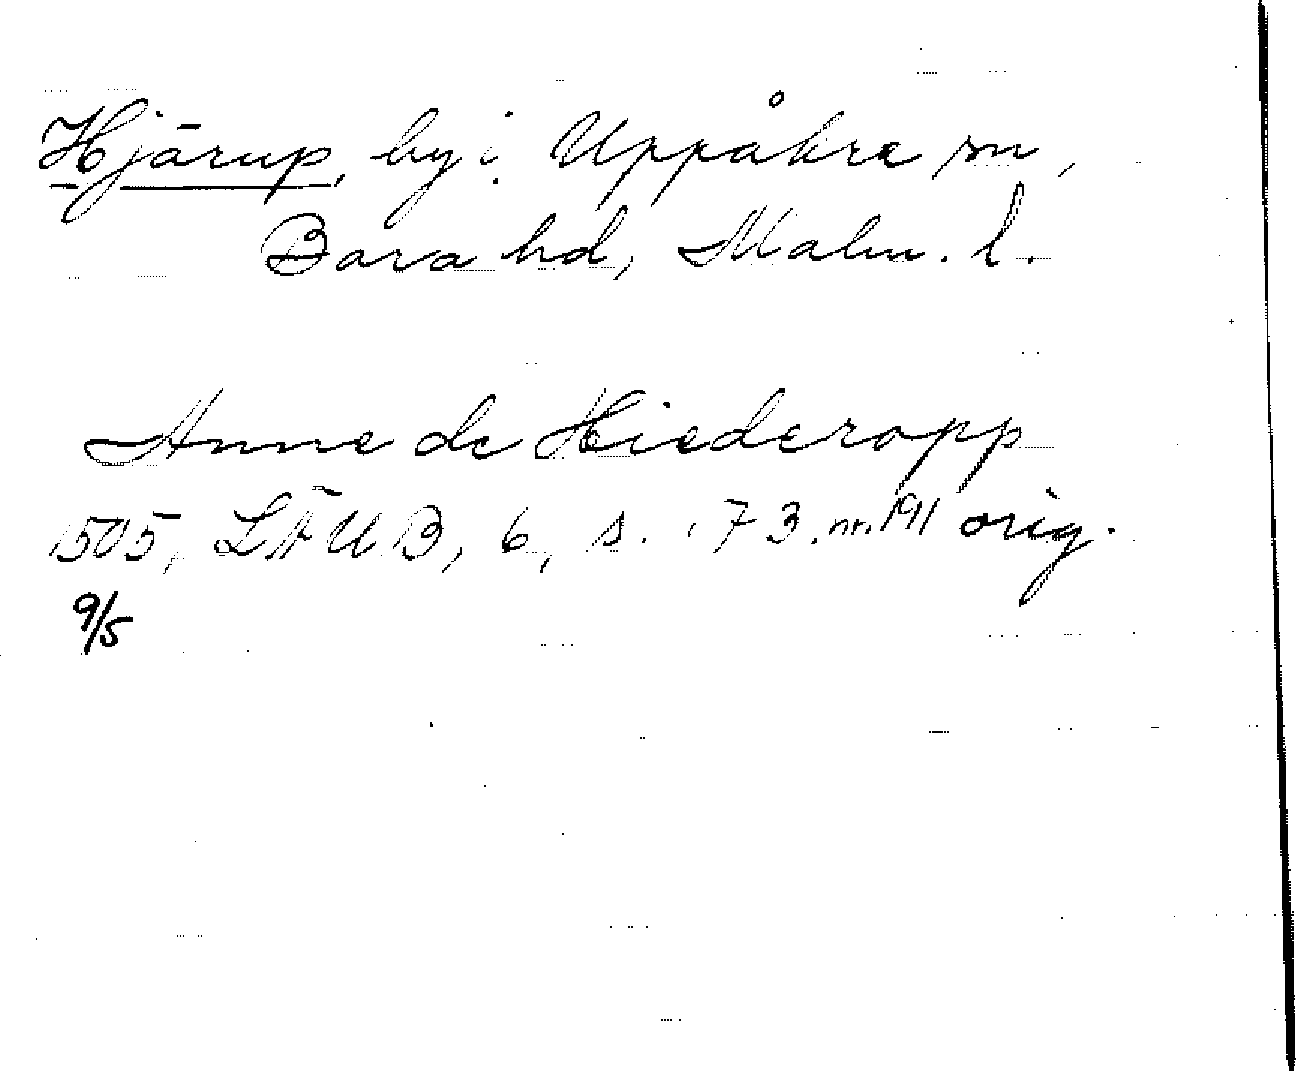 Hjärup, by i Uppåkra sn,
Bara hd, Malm. l.
Anne de Hiederopp
1505, LÄUB, 6, s. 73. nr. 191 orig.
9/5